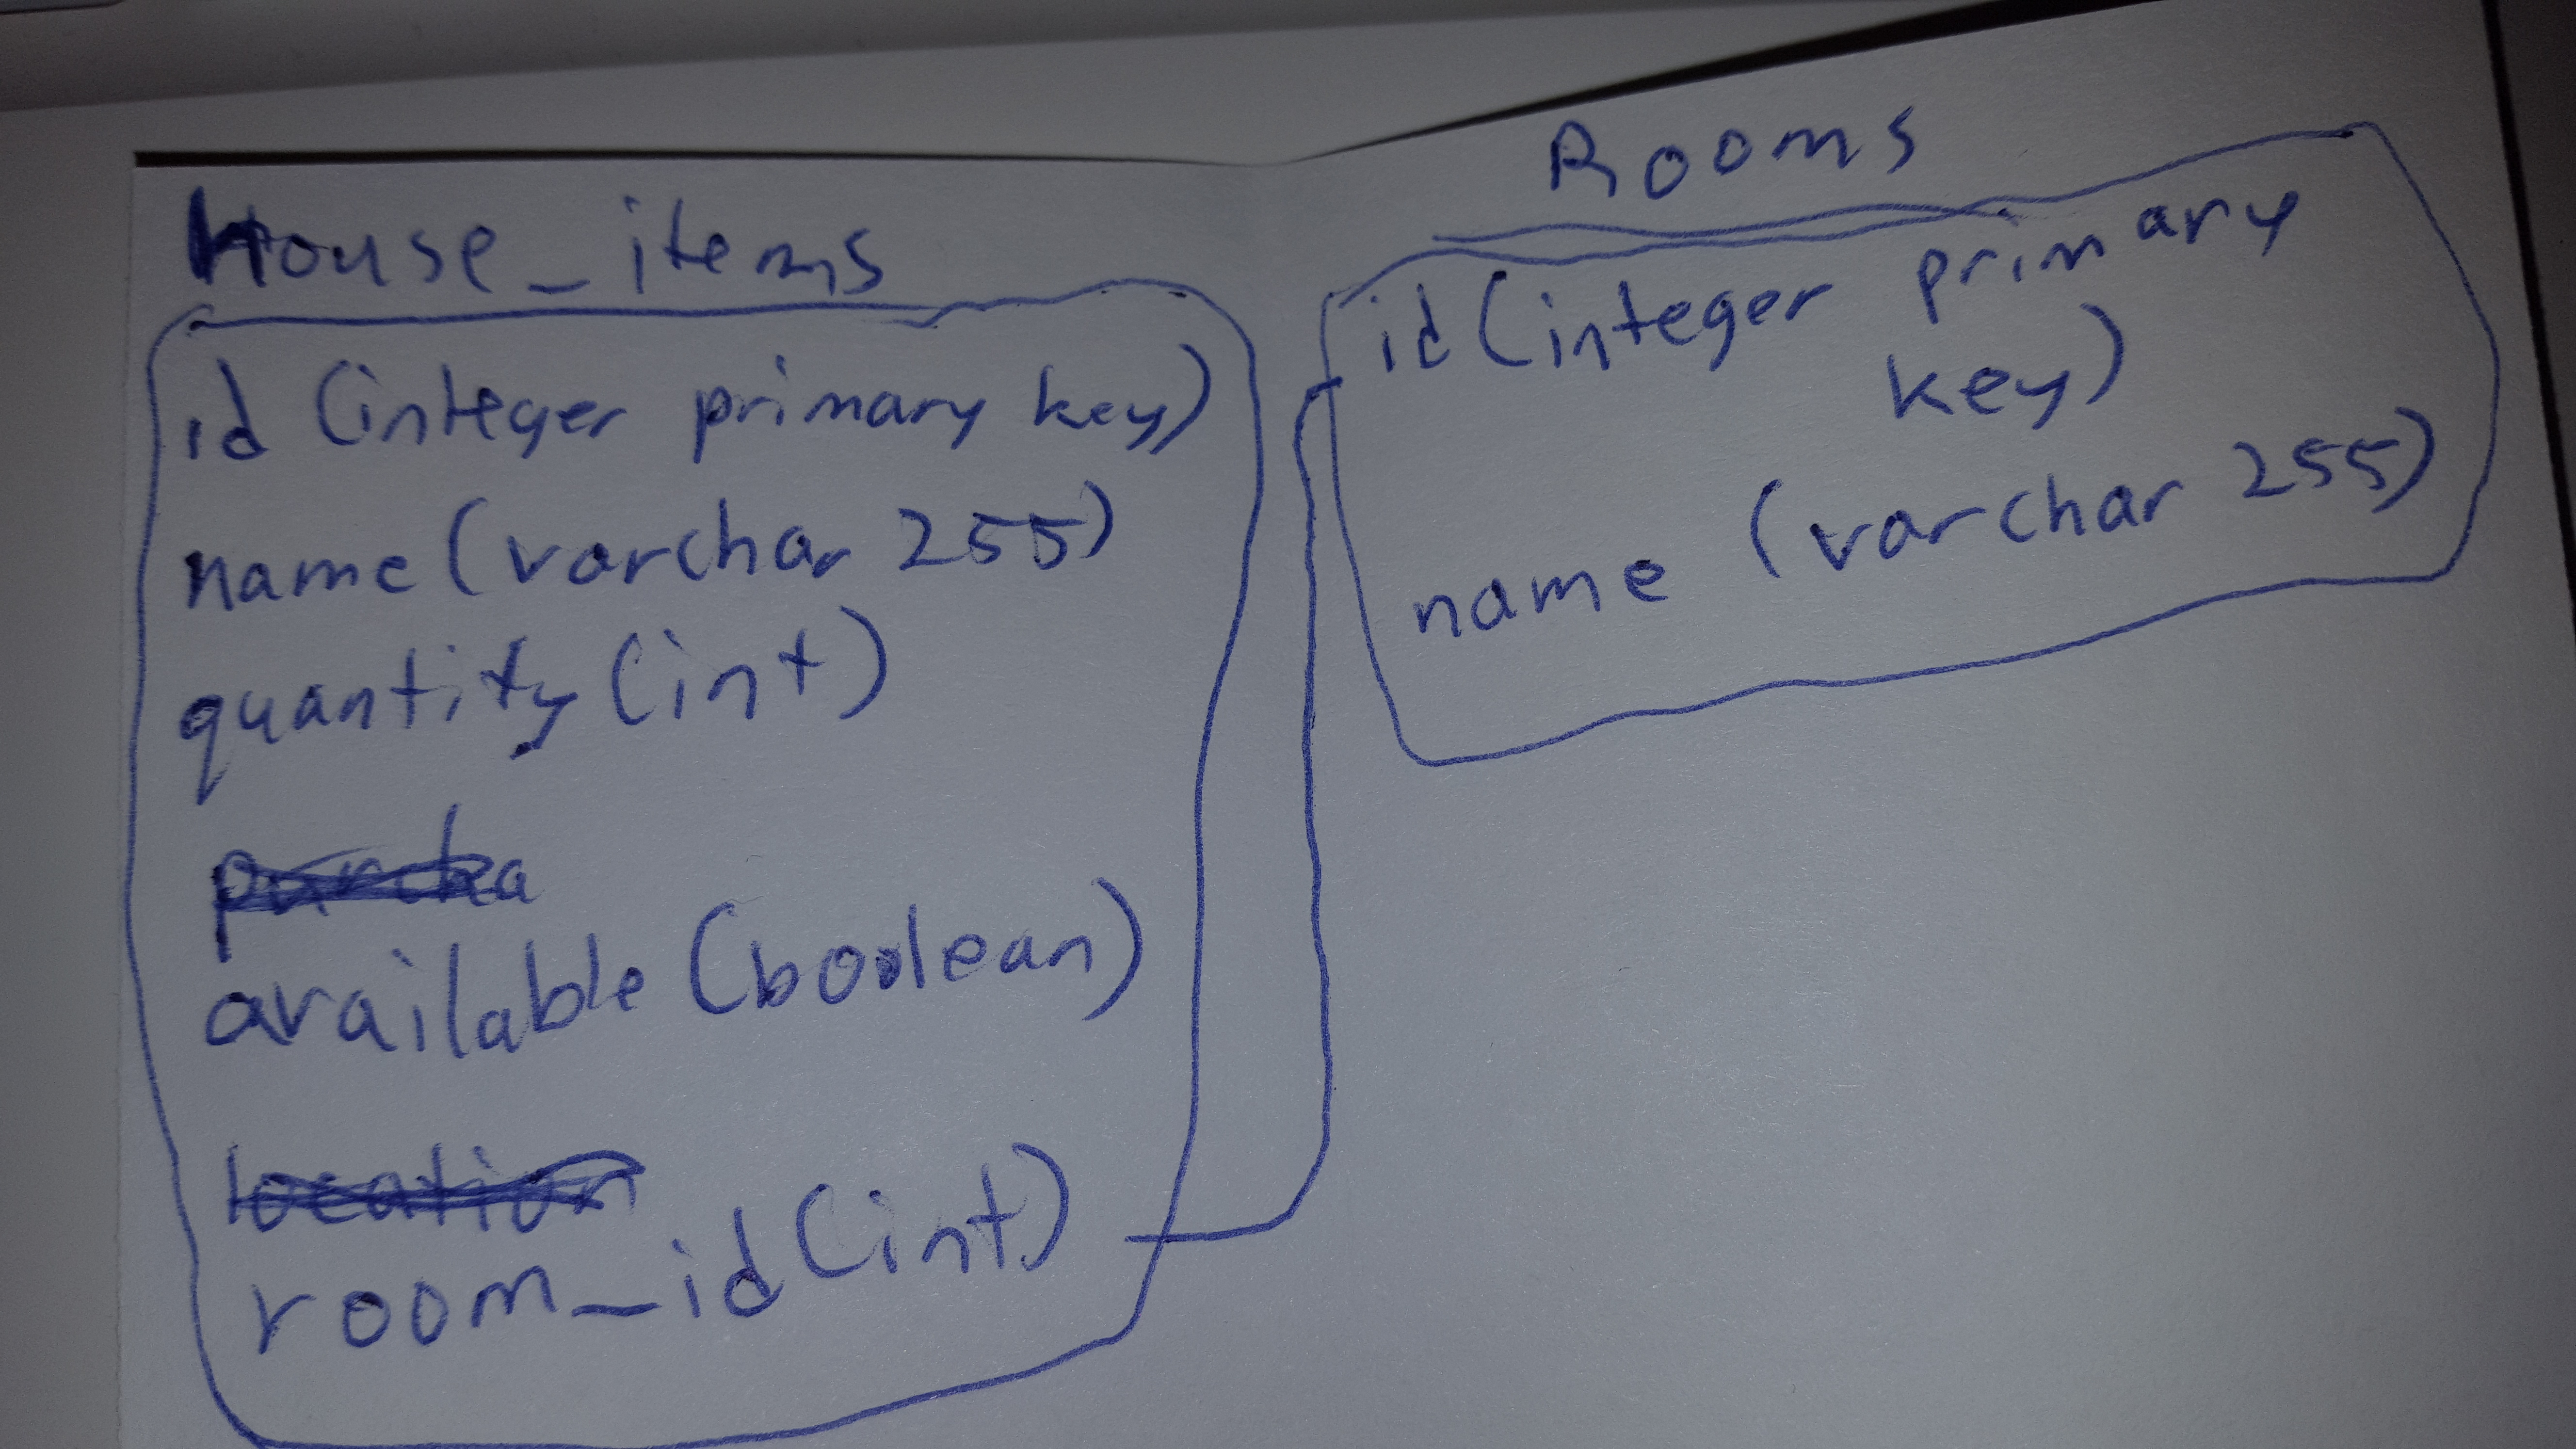 House_items
id (integer primary key)
name (varchar 255)
quantity (int)
purcha
available (boolean)
location
room_id (int)
Rooms
id (integer primary
key)
name (varchar 255)